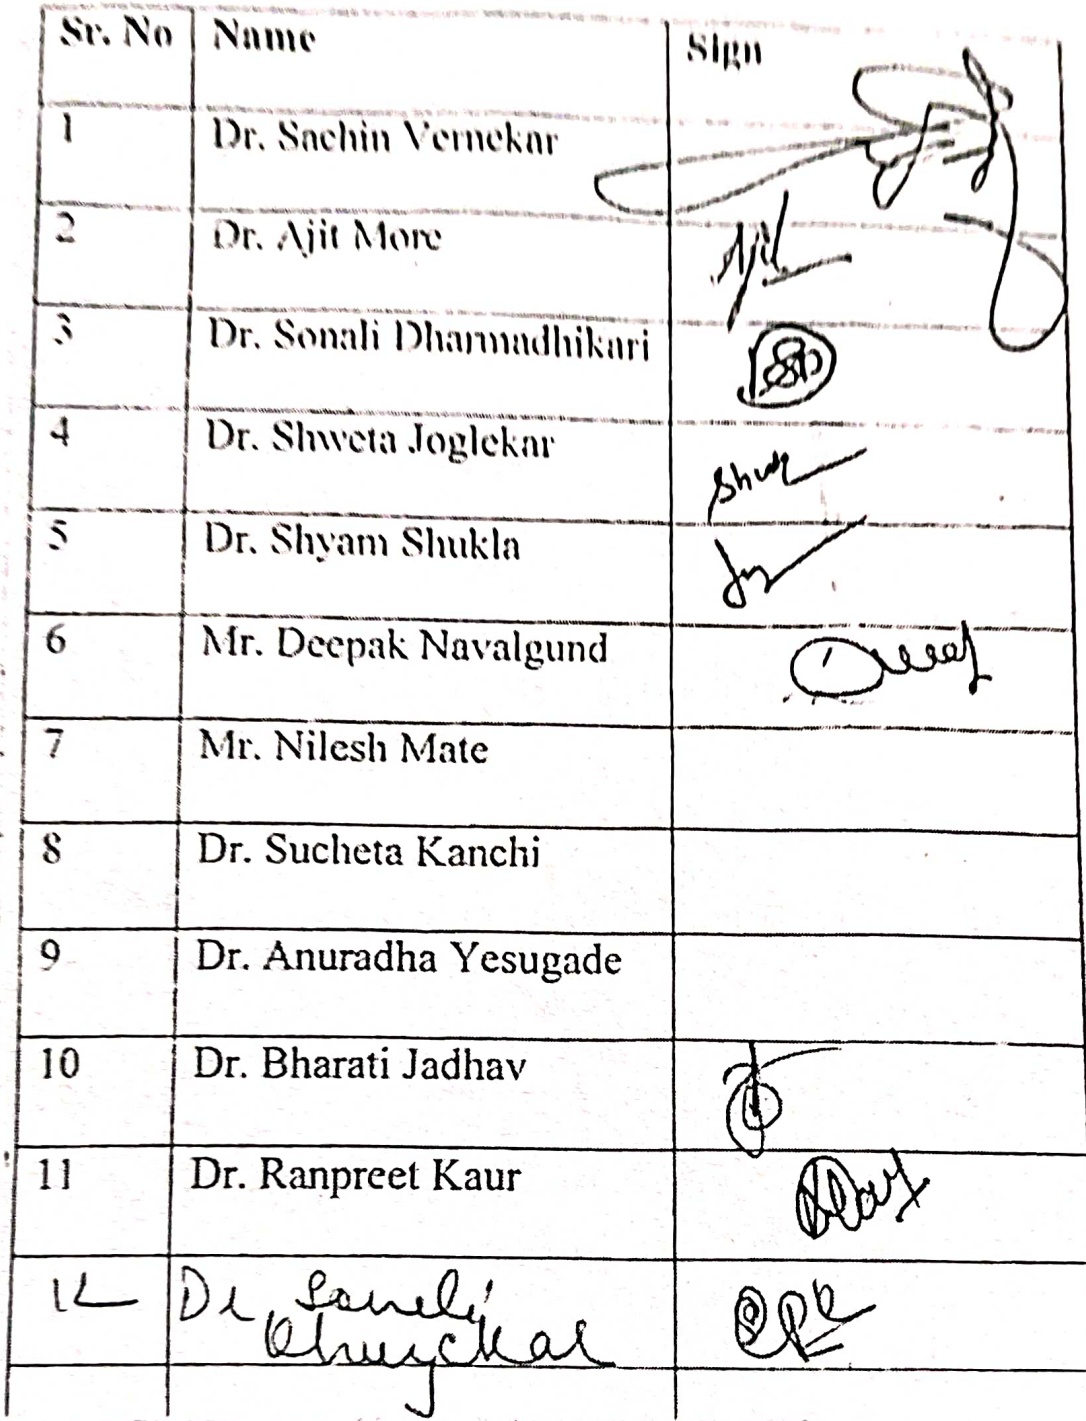 Sr. No Name Sign
1 Dr. Sachin Vernekar
2 Dr. Ajit More Ajit
3 Dr. Sonali Dharmadhikari
4 Dr. Shweta Joglekar
5 Dr. Shyam Shukla
6 Mr. Deepak Navalgund
7 Mr. Nilesh Mate
8 Dr. Sucheta Kanchi
9 Dr. Anuradha Yesugade
10 Dr. Bharati Jadhav
11 Dr. Ranpreet Kaur
12 Dr